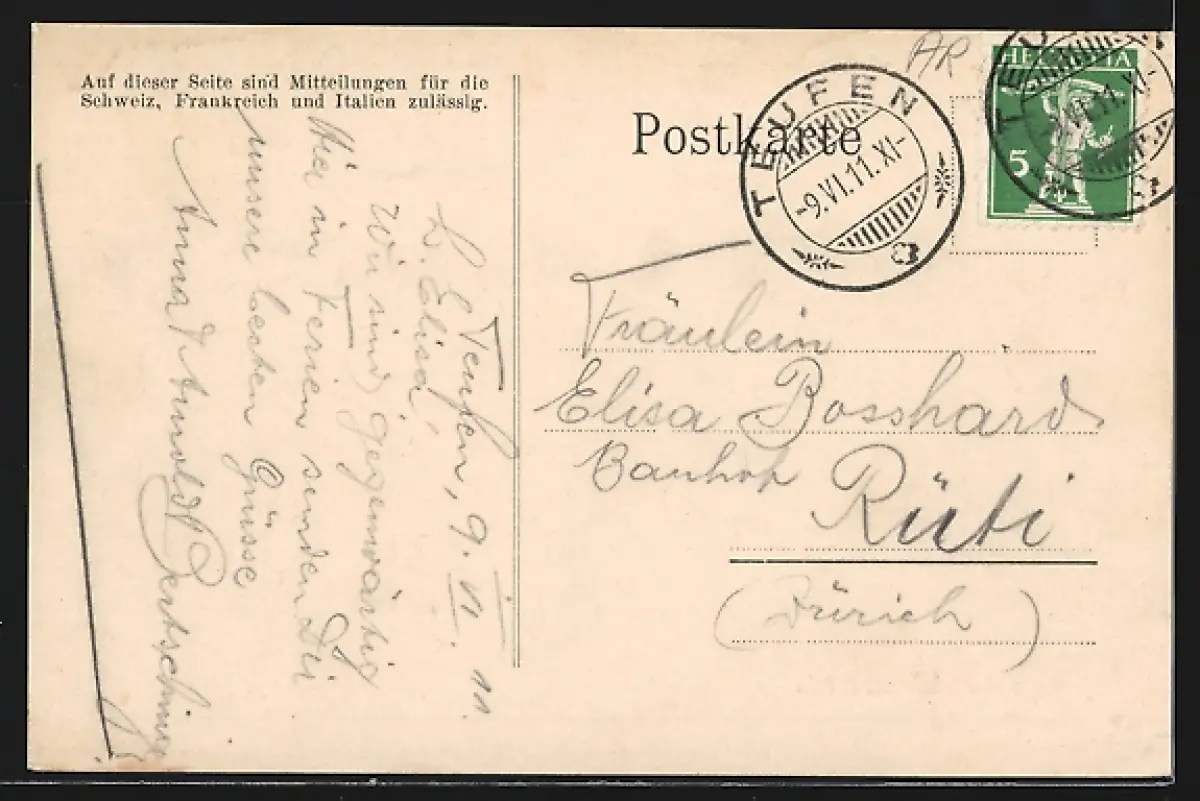 Auf dieser Seite sind Mitteilungen für die
Schweiz, Frankreich und Italien zulässig.
Postkarte
AR
TEUFEN
-9.VI.11.XI-
HELVETIA
5
TEUFEN
VI.11.XI-
Teufen, 9. VI. 11.
L. Elisa,
Wir sind gegenwärtig
hier in Ferien senden Dir
unsere besten Grüsse
Anna & Arnold
Fräulein
Elisa Bosshard
Banhof
Rüti
(Zürich)